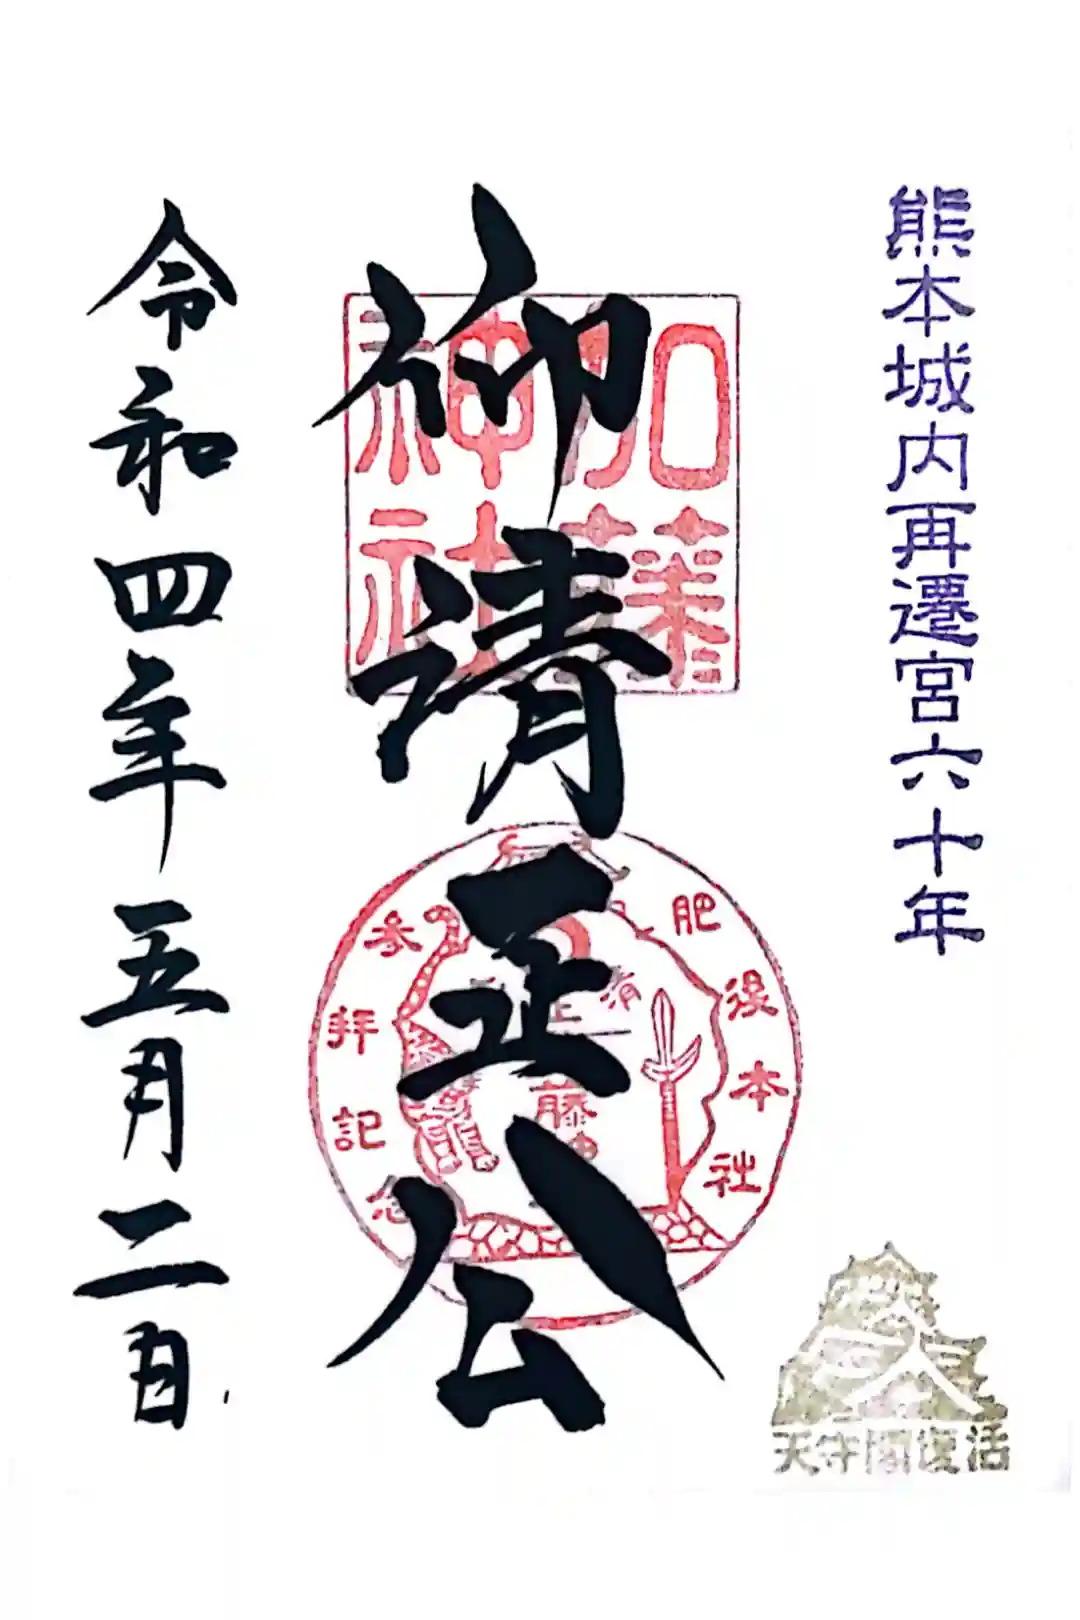 熊本城内再遷宮六十年
加藤
神社
仰清正公
肥後本社
参拝記念
清正
藤
令和四年五月二日
天守閣復活